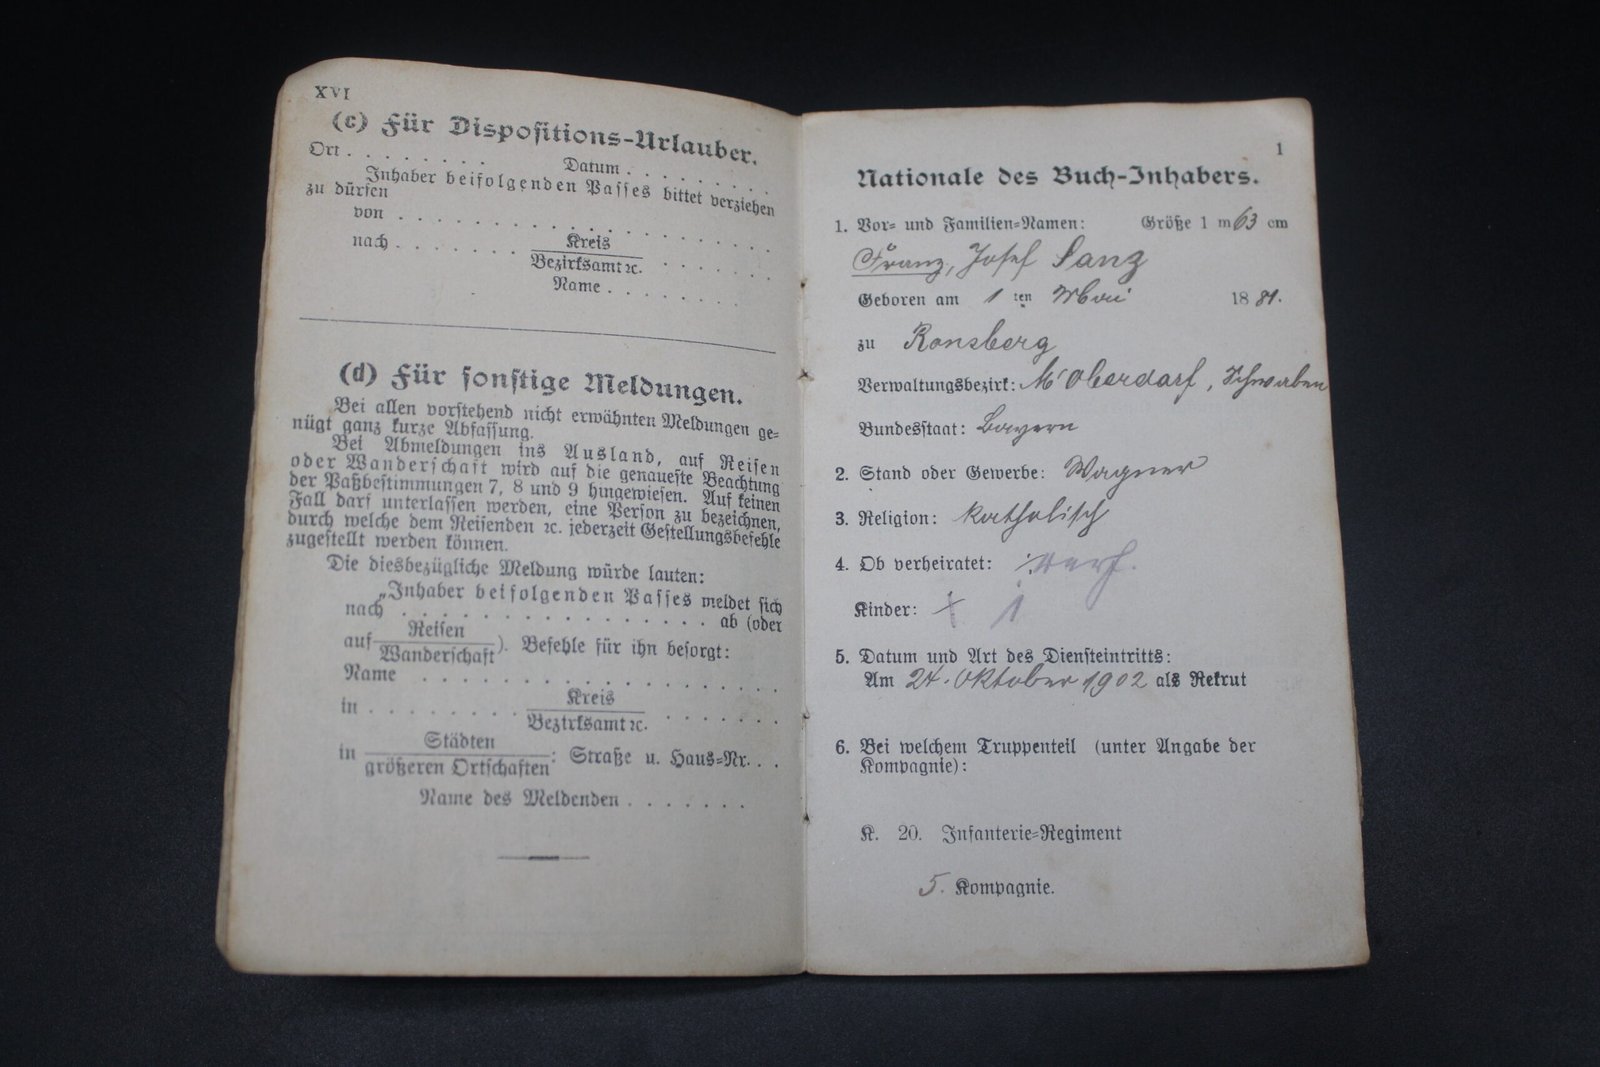 XVI
(c) Für Dispositions-Urlauber.
Ort . . . . . . . . Datum . . . . . . . . .
Inhaber beifolgenden Passes bittet verziehen
zu dürfen
von . . . . . . . . . . . . . . . . . . .
nach . . . . . . . Kreis . . . . . . .
Bezirksamt ꝛc.
Name . . . . . . . .
(d) Für sonstige Meldungen.
Bei allen vorstehend nicht erwähnten Meldungen ge-
nügt ganz kurze Abfassung.
Bei Abmeldungen ins Ausland, auf Reisen
oder Wanderschaft wird auf die genaueste Beachtung
der Paßbestimmungen 7, 8 und 9 hingewiesen. Auf keinen
Fall darf unterlassen werden, eine Person zu bezeichnen,
durch welche dem Reisenden ꝛc. jederzeit Gestellungsbefehle
zugestellt werden können.
Die diesbezügliche Meldung würde lauten:
„Inhaber beifolgenden Passes meldet sich
nach . . . . . . . . . . . . . . . . ab (oder
auf Reisen
Wanderschaft). Befehle für ihn besorgt:
Name . . . . . . . . . . . . . . . . . .
in . . . . . . . . Kreis . . . . . . .
Bezirksamt ꝛc.
in Städten
größeren Ortschaften: Straße u. Haus-Nr. . .
Name des Meldenden . . . . . . .
1
Nationale des Buch-Inhabers.
1. Vor- und Familien-Namen: Größe 1 m 63 cm
Franz, Josef Sanz
Geboren am 1 ten Mai 1881.
zu Ronsberg
Verwaltungsbezirk: M' Oberdorf, Schwaben
Bundesstaat: Bayern
2. Stand oder Gewerbe: Wagner
3. Religion: katholisch
4. Ob verheiratet: verh.
Kinder: 1
5. Datum und Art des Diensteintritts:
Am 24. Oktober 1902 als Rekrut
6. Bei welchem Truppenteil (unter Angabe der
Kompagnie):
K. 20. Infanterie-Regiment
5. Kompagnie.